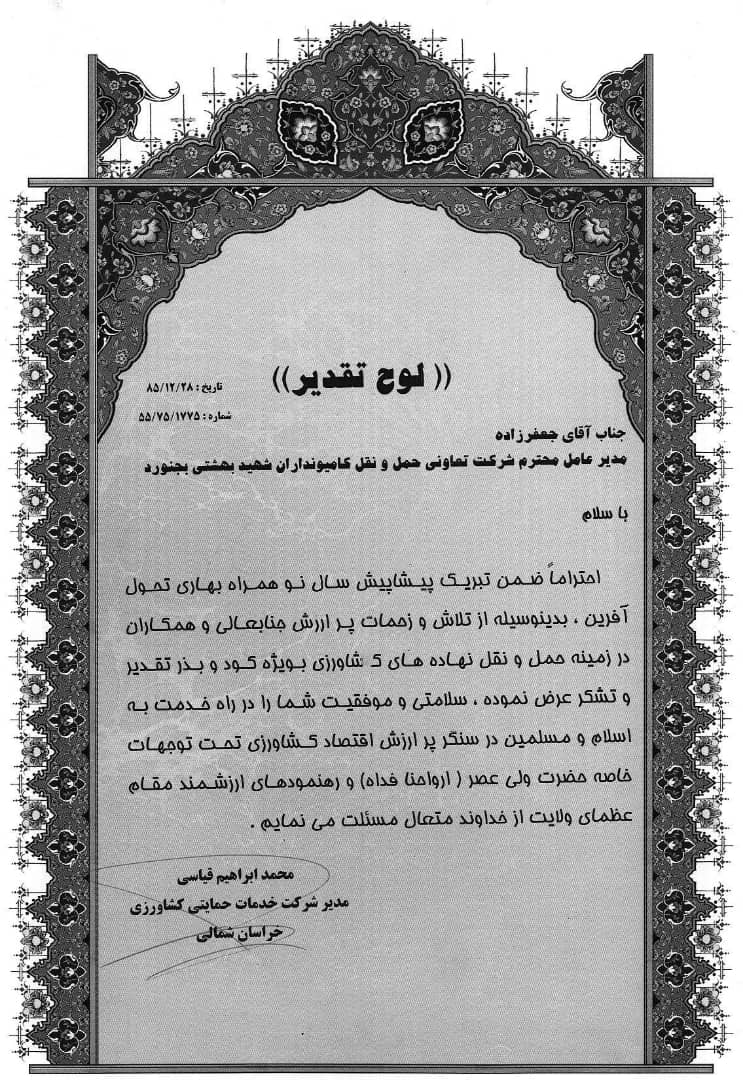 (( لوح تقدیر ))
تاریخ : ۸۵/۱۲/۲۸
شماره : ۵۵/۷۵/۱۷۷۵
جناب آقای جعفرزاده
مدیر عامل محترم شرکت تعاونی حمل و نقل کامیونداران شهید بهشتی بجنورد
با سلام
احتراماً ضمن تبریک پیشاپیش سال نو همراه بهاری تحول
آفرین ، بدینوسیله از تلاش و زحمات پر ارزش جنابعالی و همکاران
در زمینه حمل و نقل نهاده های کشاورزی بویژه کود و بذر تقدیر
و تشکر عرض نموده ، سلامتی و موفقیت شما را در راه خدمت به
اسلام و مسلمین در سنگر پر ارزش اقتصاد کشاورزی تحت توجهات
خاصه حضرت ولی عصر ( ارواحنا فداه) و رهنمودهای ارزشمند مقام
عظمای ولایت از خداوند متعال مسئلت می نمایم .
محمد ابراهیم قیاسی
مدیر شرکت خدمات حمایتی کشاورزی
خراسان شمالی